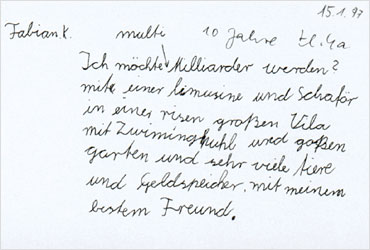 15.1.97
Fabian K. multi 10 Jahre Kl. 4a
Ich möchte Milliarder werden?
mite einer limusine und Schafför
in einer risen großen Vila
mit Zwimingpuhl und goßen
garten und sehr viele tiere
und Geldspeicher. mit meinem
bestem Freund.